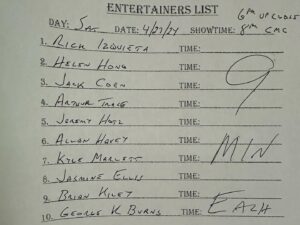 ENTERTAINERS LIST
DAY: SAT DATE: 4/27/24 SHOWTIME: 6PM UPCLOSE
8PM CMC
1. RICK IZQUIETA TIME:
2. HELEN HONG TIME:
3. JACK COEN TIME: 9
4. ARTHUR TRACE TIME:
5. JEREMY HOTZ TIME:
6. ALLAN HAVEY TIME: MIN
7. KYLE MARLETT TIME:
8. JASMINE ELLIS TIME:
9. BRIAN KILEY TIME: EACH
10. GEORGE K BURNS TIME: